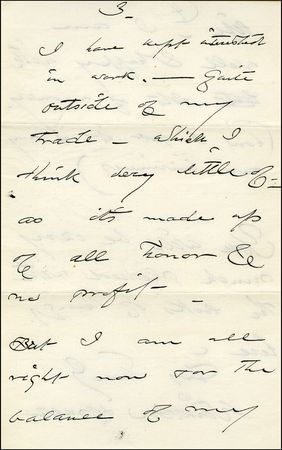 3-
I have kept interested
in work. — Quite
outside of my
trade — which I
think very little of —
as it's made up
of all honor &c
no profit —
But I am all
right now for the
balance of my